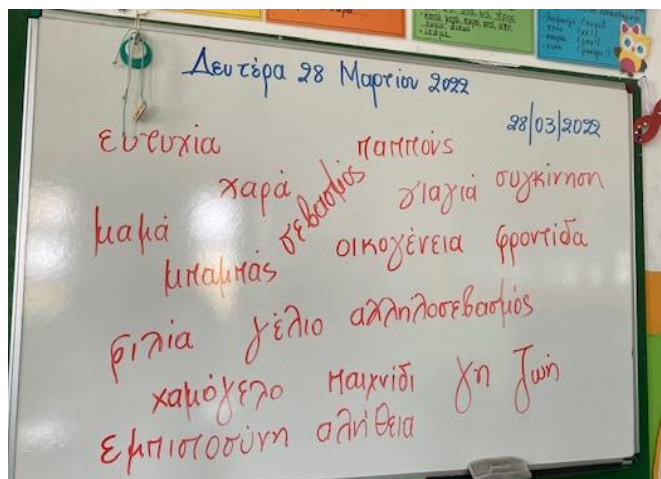 Δευτέρα 28 Μαρτίου 2022
28/03/2022
ευτυχία παππούς
χαρά σεβασμός γιαγιά συγκίνηση
μαμά μπαμπάς οικογένεια φροντίδα
φιλία γέλιο αλληλοσεβασμός
χαμόγελο παιχνίδι γη ζωή
εμπιστοσύνη αλήθεια